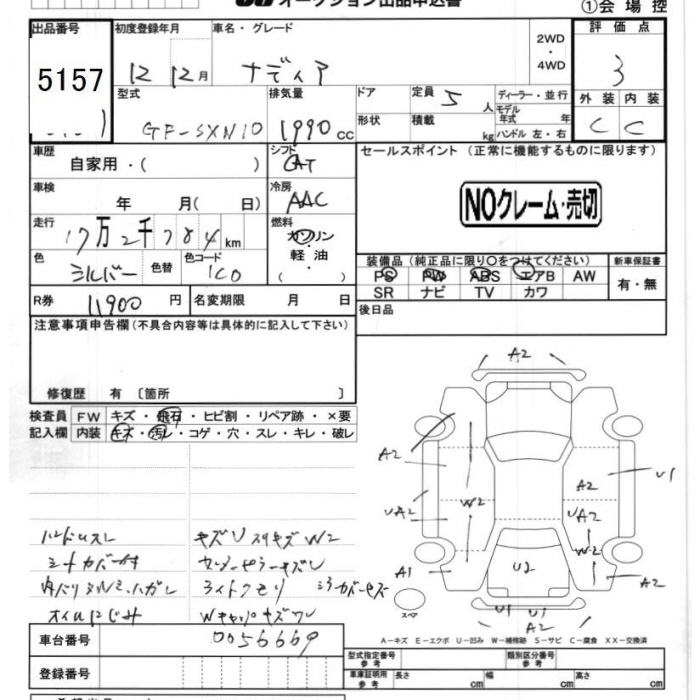 オークション出品申込書
①会場控
出品番号 初度登録年月 車名・グレード 2WD・4WD 評価点
5157 12 12月 ナディア 3
型式 排気量 ドア 定員 5人 ディーラー・並行 外装 内装
GF-SXN10 1990cc 形状 積載 kg モデル年式 年 ハンドル 左・右 C C
車歴 自家用・( ) シフト CAT セールスポイント (正常に機能するものに限ります)
車検 年 月( 日) 冷房 AAC
NOクレーム・売切
走行 17万2千784km 燃料 ガソリン 軽油 ( ・ )
色 シルバー 色替 色コード 1C0
装備品(純正品に限り○をつけてください) 新車保証書
PS PW ABS エアB AW 有・無
SR ナビ TV カワ
R券 11900円 名変期限 月 日
後日品
注意事項申告欄(不具合内容等は具体的に記入して下さい)
修復歴 有 〔箇所 〕
検査員 FW キズ・飛石・ヒビ割・リペア跡・×要
記入欄 内装 キズ・汚レ・コゲ・穴・スレ・キレ・破レ
A2
A2 U1
A2
W2
UA2 UA2
W2
A1 U2 A2
U1 U1
スペア
ハンドルスレ キズU スリキズW2
シートカバー付
内バリ ハガレ ライトクモリ
オイルにじみ
A-キズ E-エクボ U-凹み W-補修跡 S-サビ C-腐食 XX-交換済
車台番号 0056669
型式指定番号 参考 類別区分番号 参考
登録番号
車庫証明用 参考 長さ cm 幅 cm 高さ cm